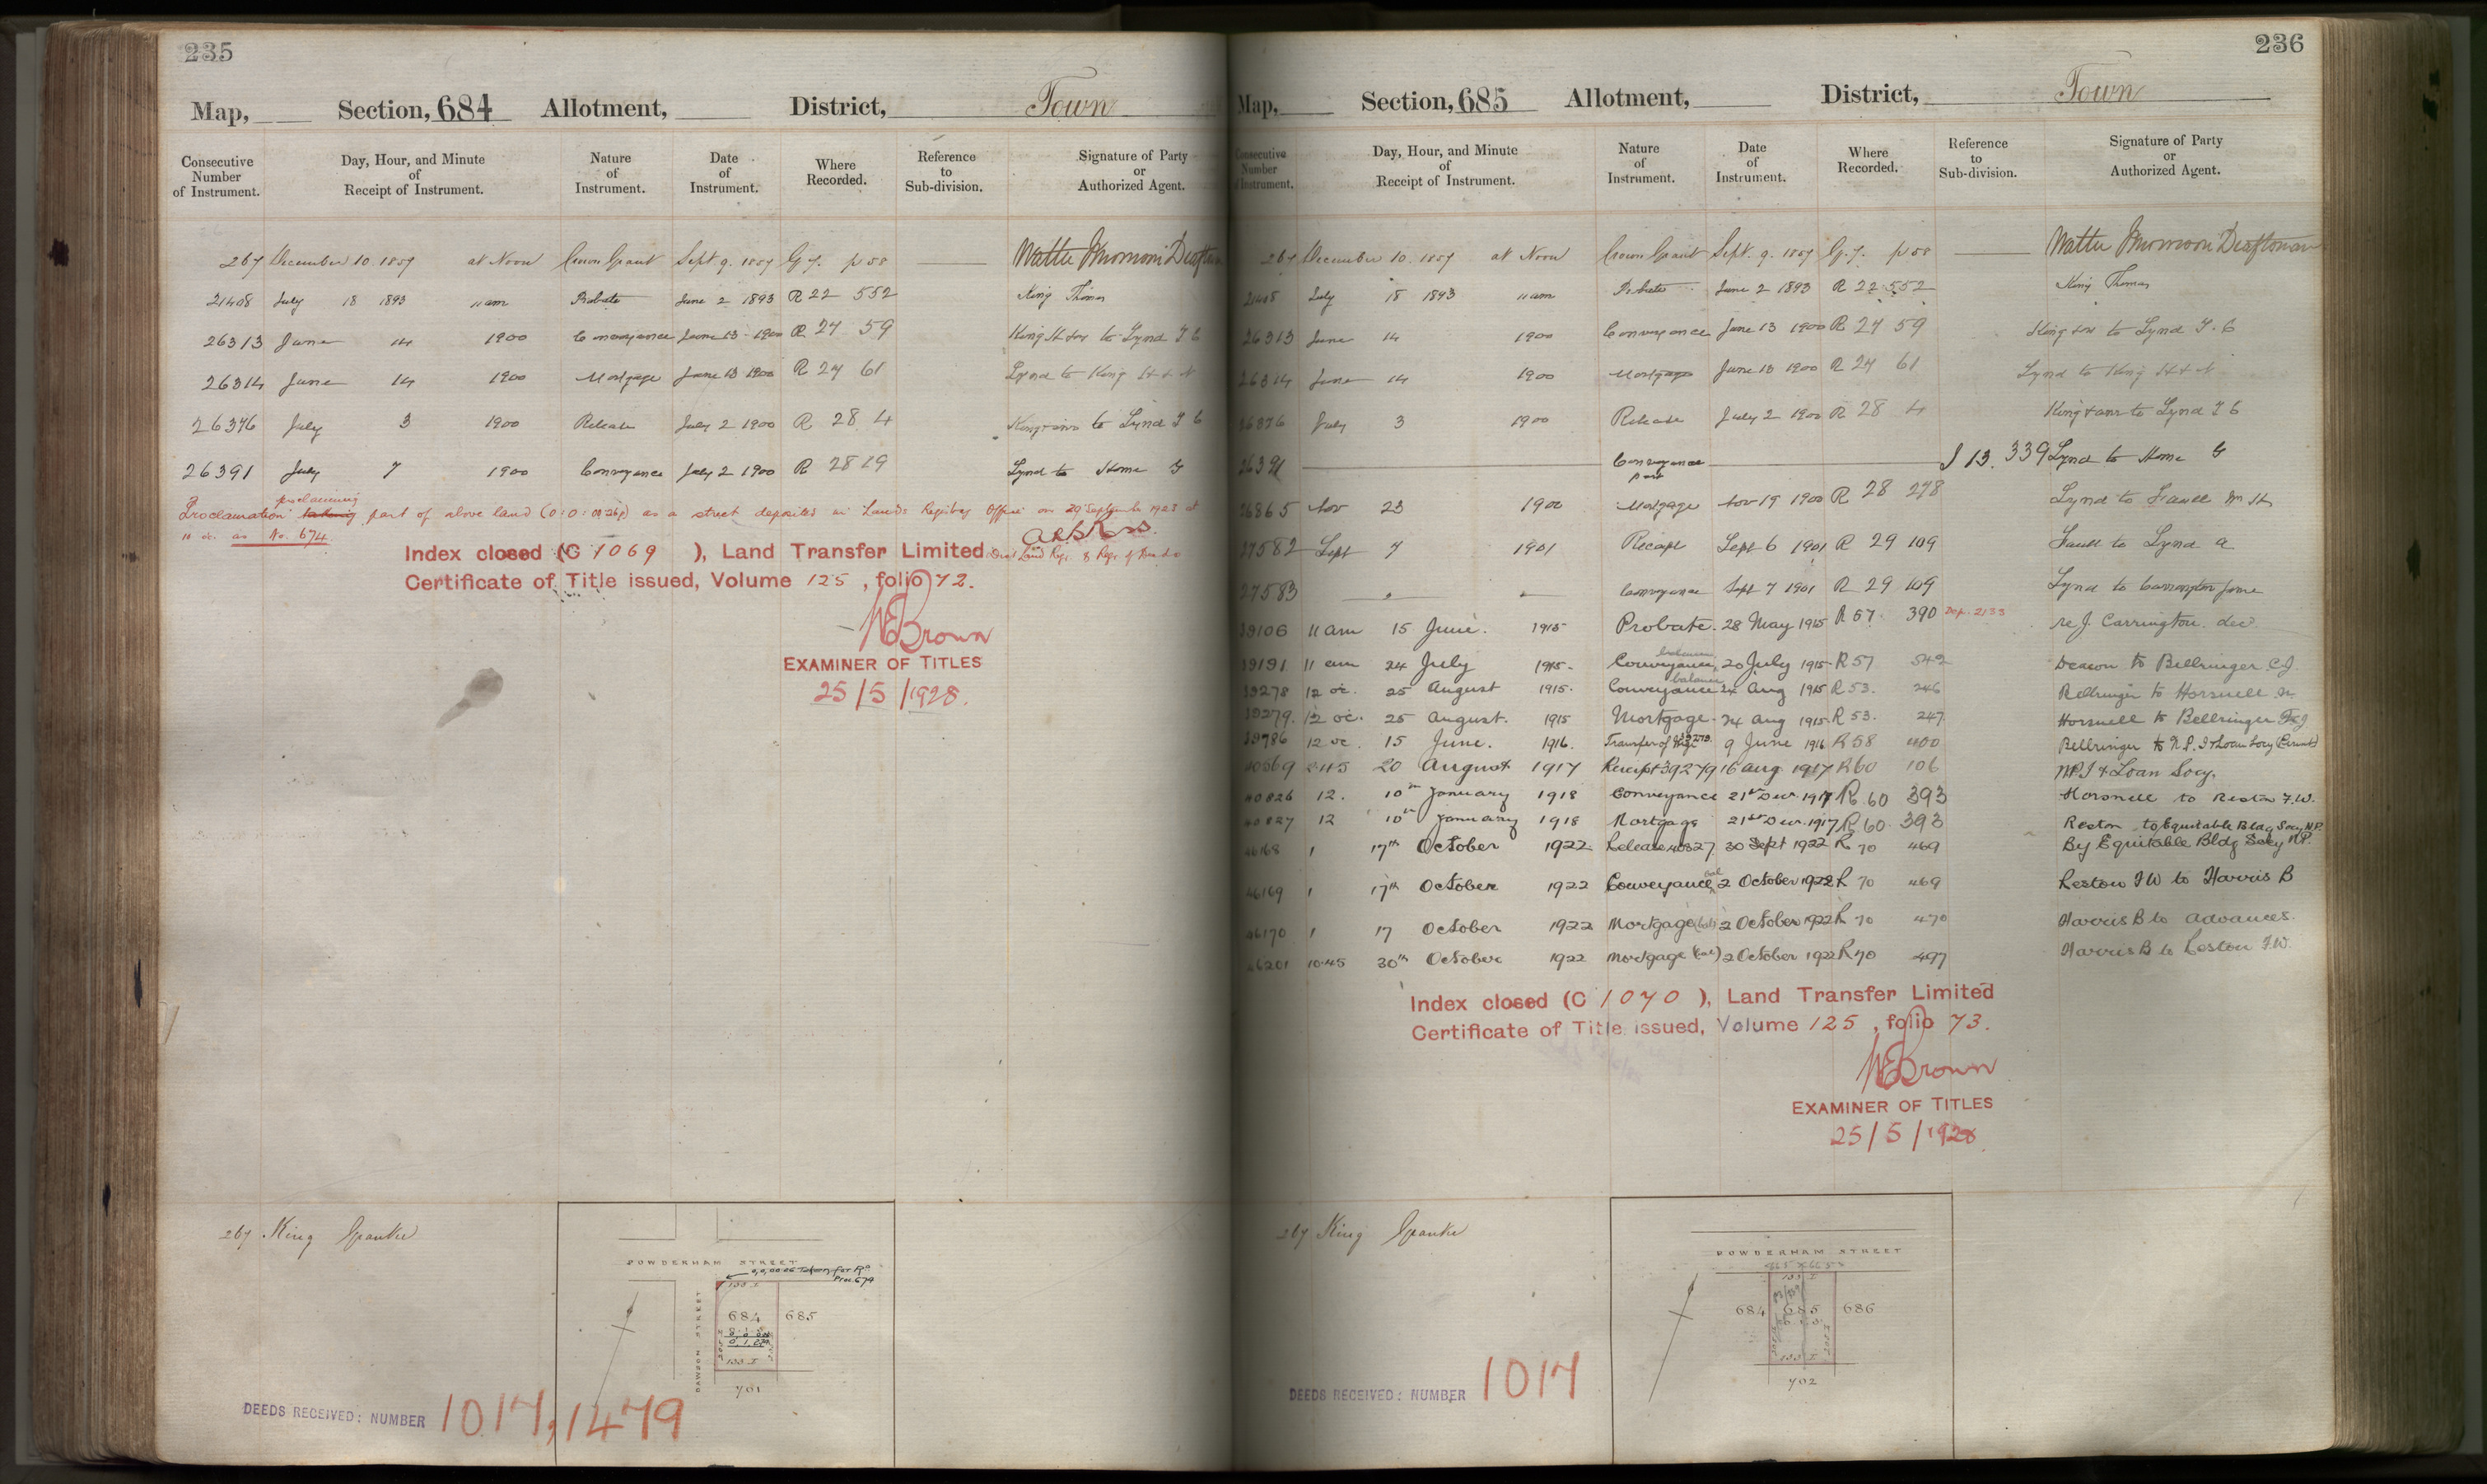 235
Map, Section, 684 Allotment, District, Town
Consecutive Number of Instrument.
Day, Hour, and Minute of Receipt of Instrument.
Nature of Instrument.
Date of Instrument.
Where Recorded.
Reference to Sub-division.
Signature of Party or Authorized Agent.
267 December 10. 1857 at Noon Crown Grant Sept 9. 1857 G 7. p 58
21408 July 18 1893 11am Probate June 2 1893 R 22 552 King Thomas
26313 June 14 1900 Conveyance June 13 1900 R 27 59 King H & or to Lynd J C
26314 June 14 1900 Mortgage June 13 1900 R 27 61 Lynd to King H & N
26376 July 3 1900 Release July 2 1900 R 28 4 King & anr to Lynd J C
26391 July 7 1900 Conveyance July 2 1900 R 28 19 Lynd to Home G
Proclamation taking proclaiming part of above land (0:0:00.26p) as a street deposited in Lands Registry Office on 29 September 1923 at
11 oc. as No. 674
Index closed (C 1069 ), Land Transfer Limited
Certificate of Title issued, Volume 125 , folio 72.
WEBrown
EXAMINER OF TITLES
25/5/1928.
267 King Grantee
POWDERHAM STREET
0,0,00.26 Taken for Rd.
Proc. 674
133 I
DAWSON STREET
684
685
133 I
701
DEEDS RECEIVED: NUMBER 1017, 1479
236
Map, Section, 685 Allotment, District, Town
Consecutive Number of Instrument.
Day, Hour, and Minute of Receipt of Instrument.
Nature of Instrument.
Date of Instrument.
Where Recorded.
Reference to Sub-division.
Signature of Party or Authorized Agent.
267 December 10. 1857 at Noon Crown Grant Sept. 9. 1857 G. 7. p 58
21408 July 18 1893 11am Probate June 2 1893 R 22 552 King Thomas
26313 June 14 1900 Conveyance June 13 1900 R 27 59 King & or to Lynd J. C
26314 June 14 1900 Mortgage June 13 1900 R 27 61 Lynd to King H & N
26376 July 3 1900 Release July 2 1900 R 28 4 King & anr to Lynd J C
26391 Conveyance part J 13. 339 Lynd to Home G
26865 Nov 23 1900 Mortgage Nov 19 1900 R 28 278 Lynd to Faull Wm H
27582 Sept 7 1901 Receipt Sept 6 1901 R 29 109 Faull to Lynd a
27583 Conveyance Sept 7 1901 R 29 109 Lynd to Carrington Jane
39106 11 am 15 June. 1915 Probate. 28 May 1915 R 57. 390 Dep. 2133 re J. Carrington. dec
39191 11 am 24 July 1915. Conveyance balance 20 July 1915 R 57 542 Deacon to Bellringer C.J.
39278 12 oc. 25 August 1915. Conveyance balance 24 Aug 1915 R 53. 246 Bellringer to Horsnell
39279. 12 oc. 25 August. 1915 Mortgage. 24 Aug 1915. R 53. 247 Horsnell to Bellringer
39786 12 oc. 15 June. 1916. Transfer of Mtge 39279. 9 June 1916 R 58 400 Bellringer to N.P. I & Loan Socy (Permt)
40369 2.45 20 August 1917 Receipt 39279 16 Aug 1917 R 60 106 N.P.I & Loan Socy.
40826 12. 10th January 1918 Conveyance 21st Dec. 1917 R. 60 393 Horsnell to Reston F.W.
40827 12 10th January 1918 Mortgage 21st Dec. 1917 R. 60. 393 Reston to Equitable Bldg Socy N.P.
46168 1 17th October 1922 Release 40827 30 Sept 1922 R 70 469 By Equitable Bldg Socy N.P.
46169 1 17th October 1922 Conveyance bal 2 October 1922 R 70 469 Reston F W to Harris B
46170 1 17 October 1922 Mortgage (bal) 2 October 1922 R 70 470 Harris B to Advances.
46201 10.45 30th October 1922 Mortgage (bal) 2 October 1922 R 70 497 Harris B to Reston F.W.
Index closed (C 1070 ), Land Transfer Limited
Certificate of Title issued, Volume 125 , folio 73.
WEBrown
EXAMINER OF TITLES
25/5/1928
267 King Grantee
POWDERHAM STREET
133 I
684
685
686
133 I
702
DEEDS RECEIVED: NUMBER 1017